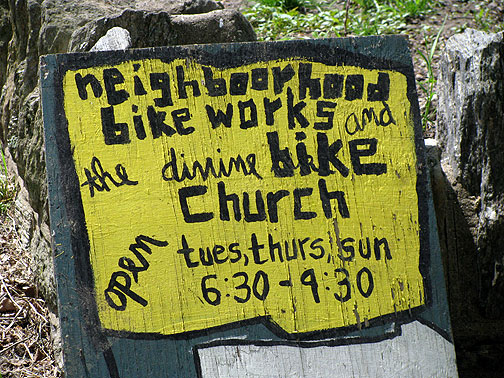 neighboorhood
bike works and
the divine bike
Church
open tues, thurs, sun
6:30-9:30